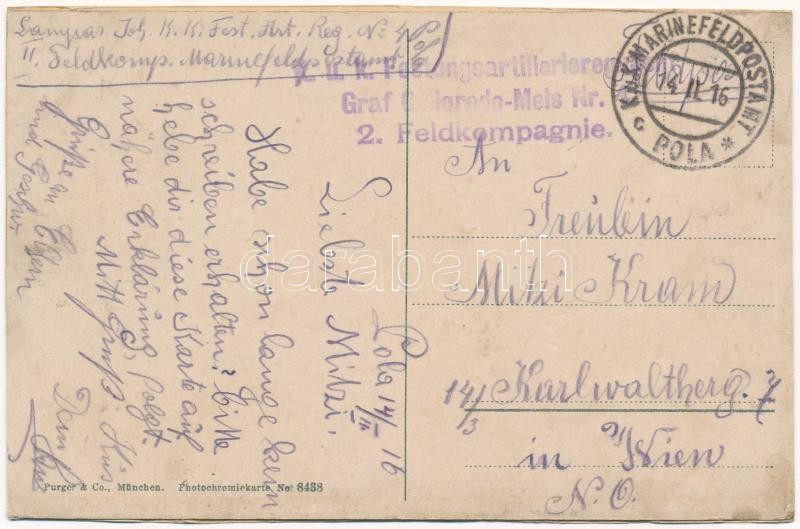 Lampias Joh. K. K. Fest. Art. Reg. No 4 Pola
II. Feldkomp. Marinefeldpostamt
K. u. k. Festungsartillerieregiment
Graf Colloredo-Mels Nr. 4
2. Feldkompagnie.
K.u.K. MARINEFELDPOSTAMT
14 II 16
c POLA *
Pola 14/II 16
Liebste Mitzi!
Habe schon lange kein
schreiben erhalten? bitte
hebe dir diese Karte auf
nähere Erklärung folgt.
Mitt Gruß. Kus
Dein
Grüße an Eltern
und
An
Freulein
Mitzi Kram
14/3 Karlwaltherg. 7
in Wien
N. O.
darabanth
Purger & Co., München. Photochromiekarte No 8438